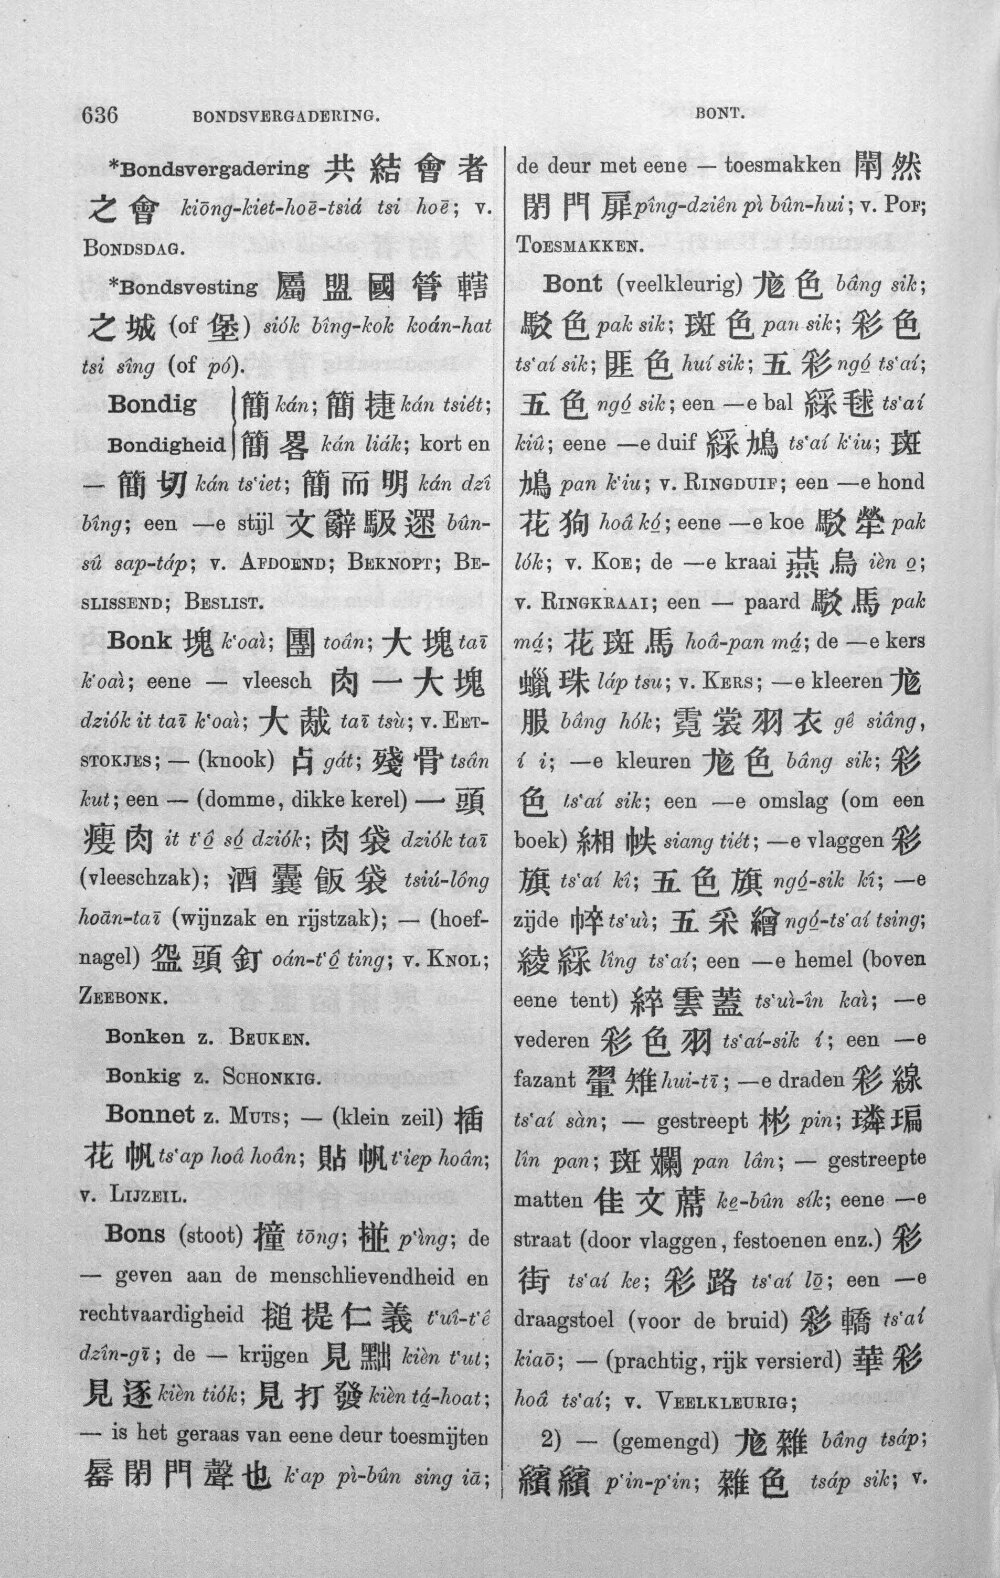 636 BONDSVERGADERING.
*Bondsvergadering 共 結 會 者
之 會 kiōng-kiet-hoē-tsiá tsi hoē; v.
BONDSDAG.
*Bondsvesting 屬 盟 國 管 轄
之 城 (of 堡) siók bîng-kok koán-hat
tsi sîng (of pó).
Bondig 簡 kán; 簡 捷 kán tsiét;
Bondigheid 簡 畧 kán liák; kort en
— 簡 切 kán ts‘iet; 簡 而 明 kán dzî
bîng; een —e stijl 文 辭 馺 遝 bûn-
sû sap-táp; v. AFDOEND; BEKNOPT; BE-
SLISSEND; BESLIST.
Bonk 塊 k‘oaì; 團 toân; 大 塊 taī
k‘oaì; eene — vleesch 肉 一 大 塊
dziók it taī k‘oaì; 大 胾 taī tsù; v. EET-
STOKJES; — (knook) 占 gát; 殘 骨 tsân
kut; een — (domme, dikke kerel) 一 頭
瘦 肉 it t‘ô̤ só̤ dziók; 肉 袋 dziók taī
(vleeschzak); 酒 囊 飯 袋 tsiú-lông
hoān-taī (wijnzak en rijstzak); — (hoef-
nagel) 盌 頭 釘 oán-t‘ô̤ ting; v. KNOL;
ZEEBONK.
Bonken z. BEUKEN.
Bonkig z. SCHONKIG.
Bonnet z. MUTS; — (klein zeil) 插
花 帆 ts‘ap hoâ hoân; 貼 帆 t‘iep hoân;
v. LIJZEIL.
Bons (stoot) 撞 tōng; 掽 p‘ìng; de
— geven aan de menschlievendheid en
rechtvaardigheid 搥 提 仁 義 t‘uî-t‘ê
dzîn-gī; de — krijgen 見 黜 kièn t‘ut;
見 逐 kièn tiók; 見 打 發 kièn tá̤-hoat;
— is het geraas van eene deur toesmijten
閉 門 聲 也 k‘ap pì-bûn sing iā;
BONT.
de deur met eene — toesmakken 閛 然
閉 門 扉 pîng-dziên pì bûn-hui; v. POF;
TOESMAKKEN.
Bont (veelkleurig) 尨 色 bâng sik;
駁 色 pak sik; 斑 色 pan sik; 彩 色
ts‘aí sik; 匪 色 huí sik; 五 彩 ngó̤ ts‘aí;
五 色 ngó̤ sik; een —e bal 綵 毬 ts‘aí
kiû; eene —e duif 綵 鳩 ts‘aí k‘iu; 斑
鳩 pan k‘iu; v. RINGDUIF; een —e hond
花 狗 hoâ kó̤; eene —e koe 駁 犖 pak
lók; v. KOE; de —e kraai 燕 烏 ièn o̤;
v. RINGKRAAI; een — paard 駁 馬 pak
má̤; 花 斑 馬 hoâ-pan má̤; de —e kers
蠟 珠 láp tsu; v. KERS; —e kleeren 尨
服 bâng hók; 霓 裳 羽 衣 gê siâng,
í i; —e kleuren 尨 色 bâng sik; 彩
色 ts‘aí sik; een —e omslag (om een
boek) 緗 帙 siang tiét; —e vlaggen 彩
旗 ts‘aí kî; 五 色 旗 ngó̤-sik kî; —e
zijde 㡜 ts‘uì; 五 采 繒 ngó̤-ts‘aí tsing;
綾 綵 lîng ts‘aí; een —e hemel (boven
eene tent) 綷 雲 蓋 ts‘uì-în kaì; —e
vederen 彩 色 羽 ts‘aí-sik í; een —e
fazant 翬 雉 hui-tī; —e draden 彩 線
ts‘aí sàn; — gestreept 彬 pin; 璘 㻞
lîn pan; 斑 斕 pan lân; — gestreepte
matten 佳 文 蓆 ke̤-bûn sík; eene —e
straat (door vlaggen, festoenen enz.) 彩
街 ts‘aí ke; 彩 路 ts‘aí lō̤; een —e
draagstoel (voor de bruid) 彩 轎 ts‘aí
kiaō; — (prachtig, rijk versierd) 華 彩
hoâ ts‘aí; v. VEELKLEURIG;
2) — (gemengd) 尨 雜 bâng tsáp;
繽 繽 p‘in-p‘in; 雜 色 tsáp sik; v.